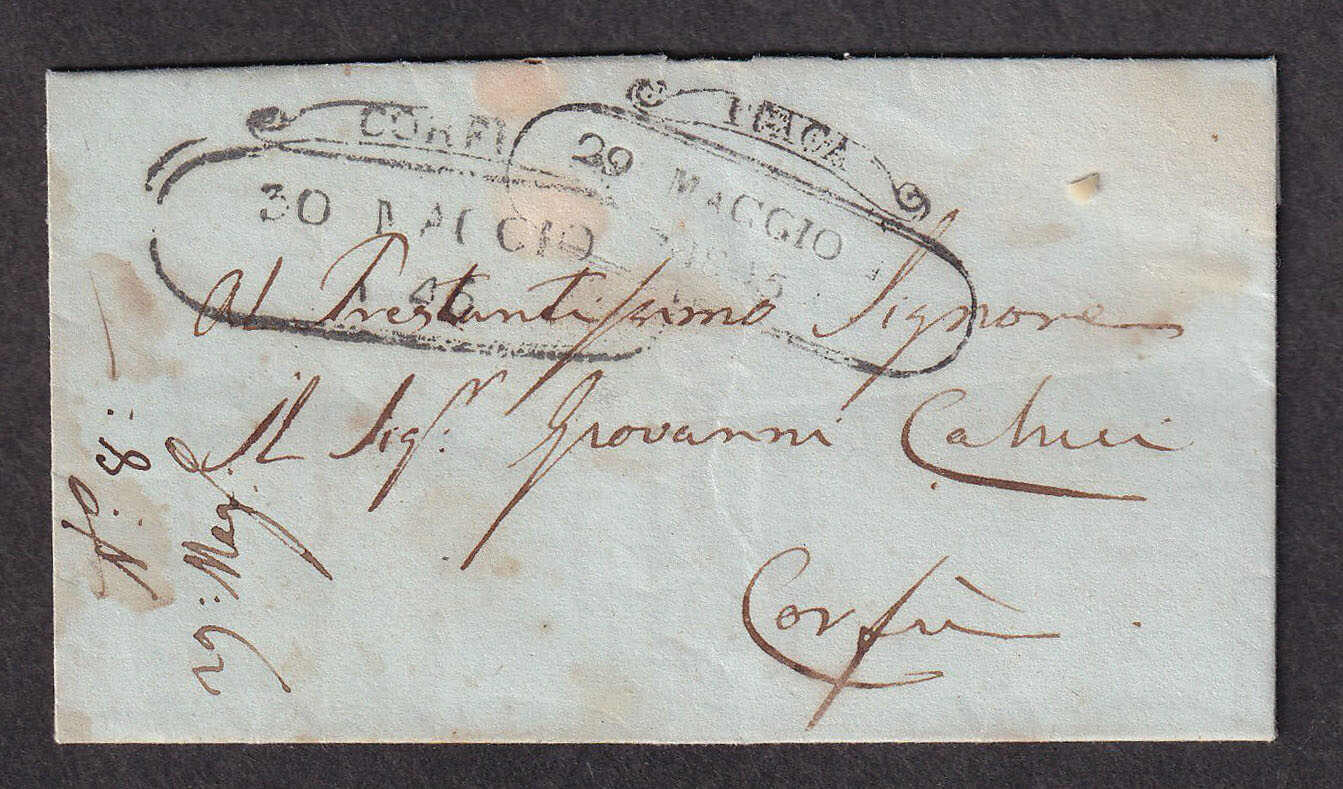 CORFU
30 MAGGIO
1 45
ITACA
29 MAGGIO
1845
Al Prestantissimo Signore
Il Sigr. Giovanni
Corfù
No. 8:
29: Mag.